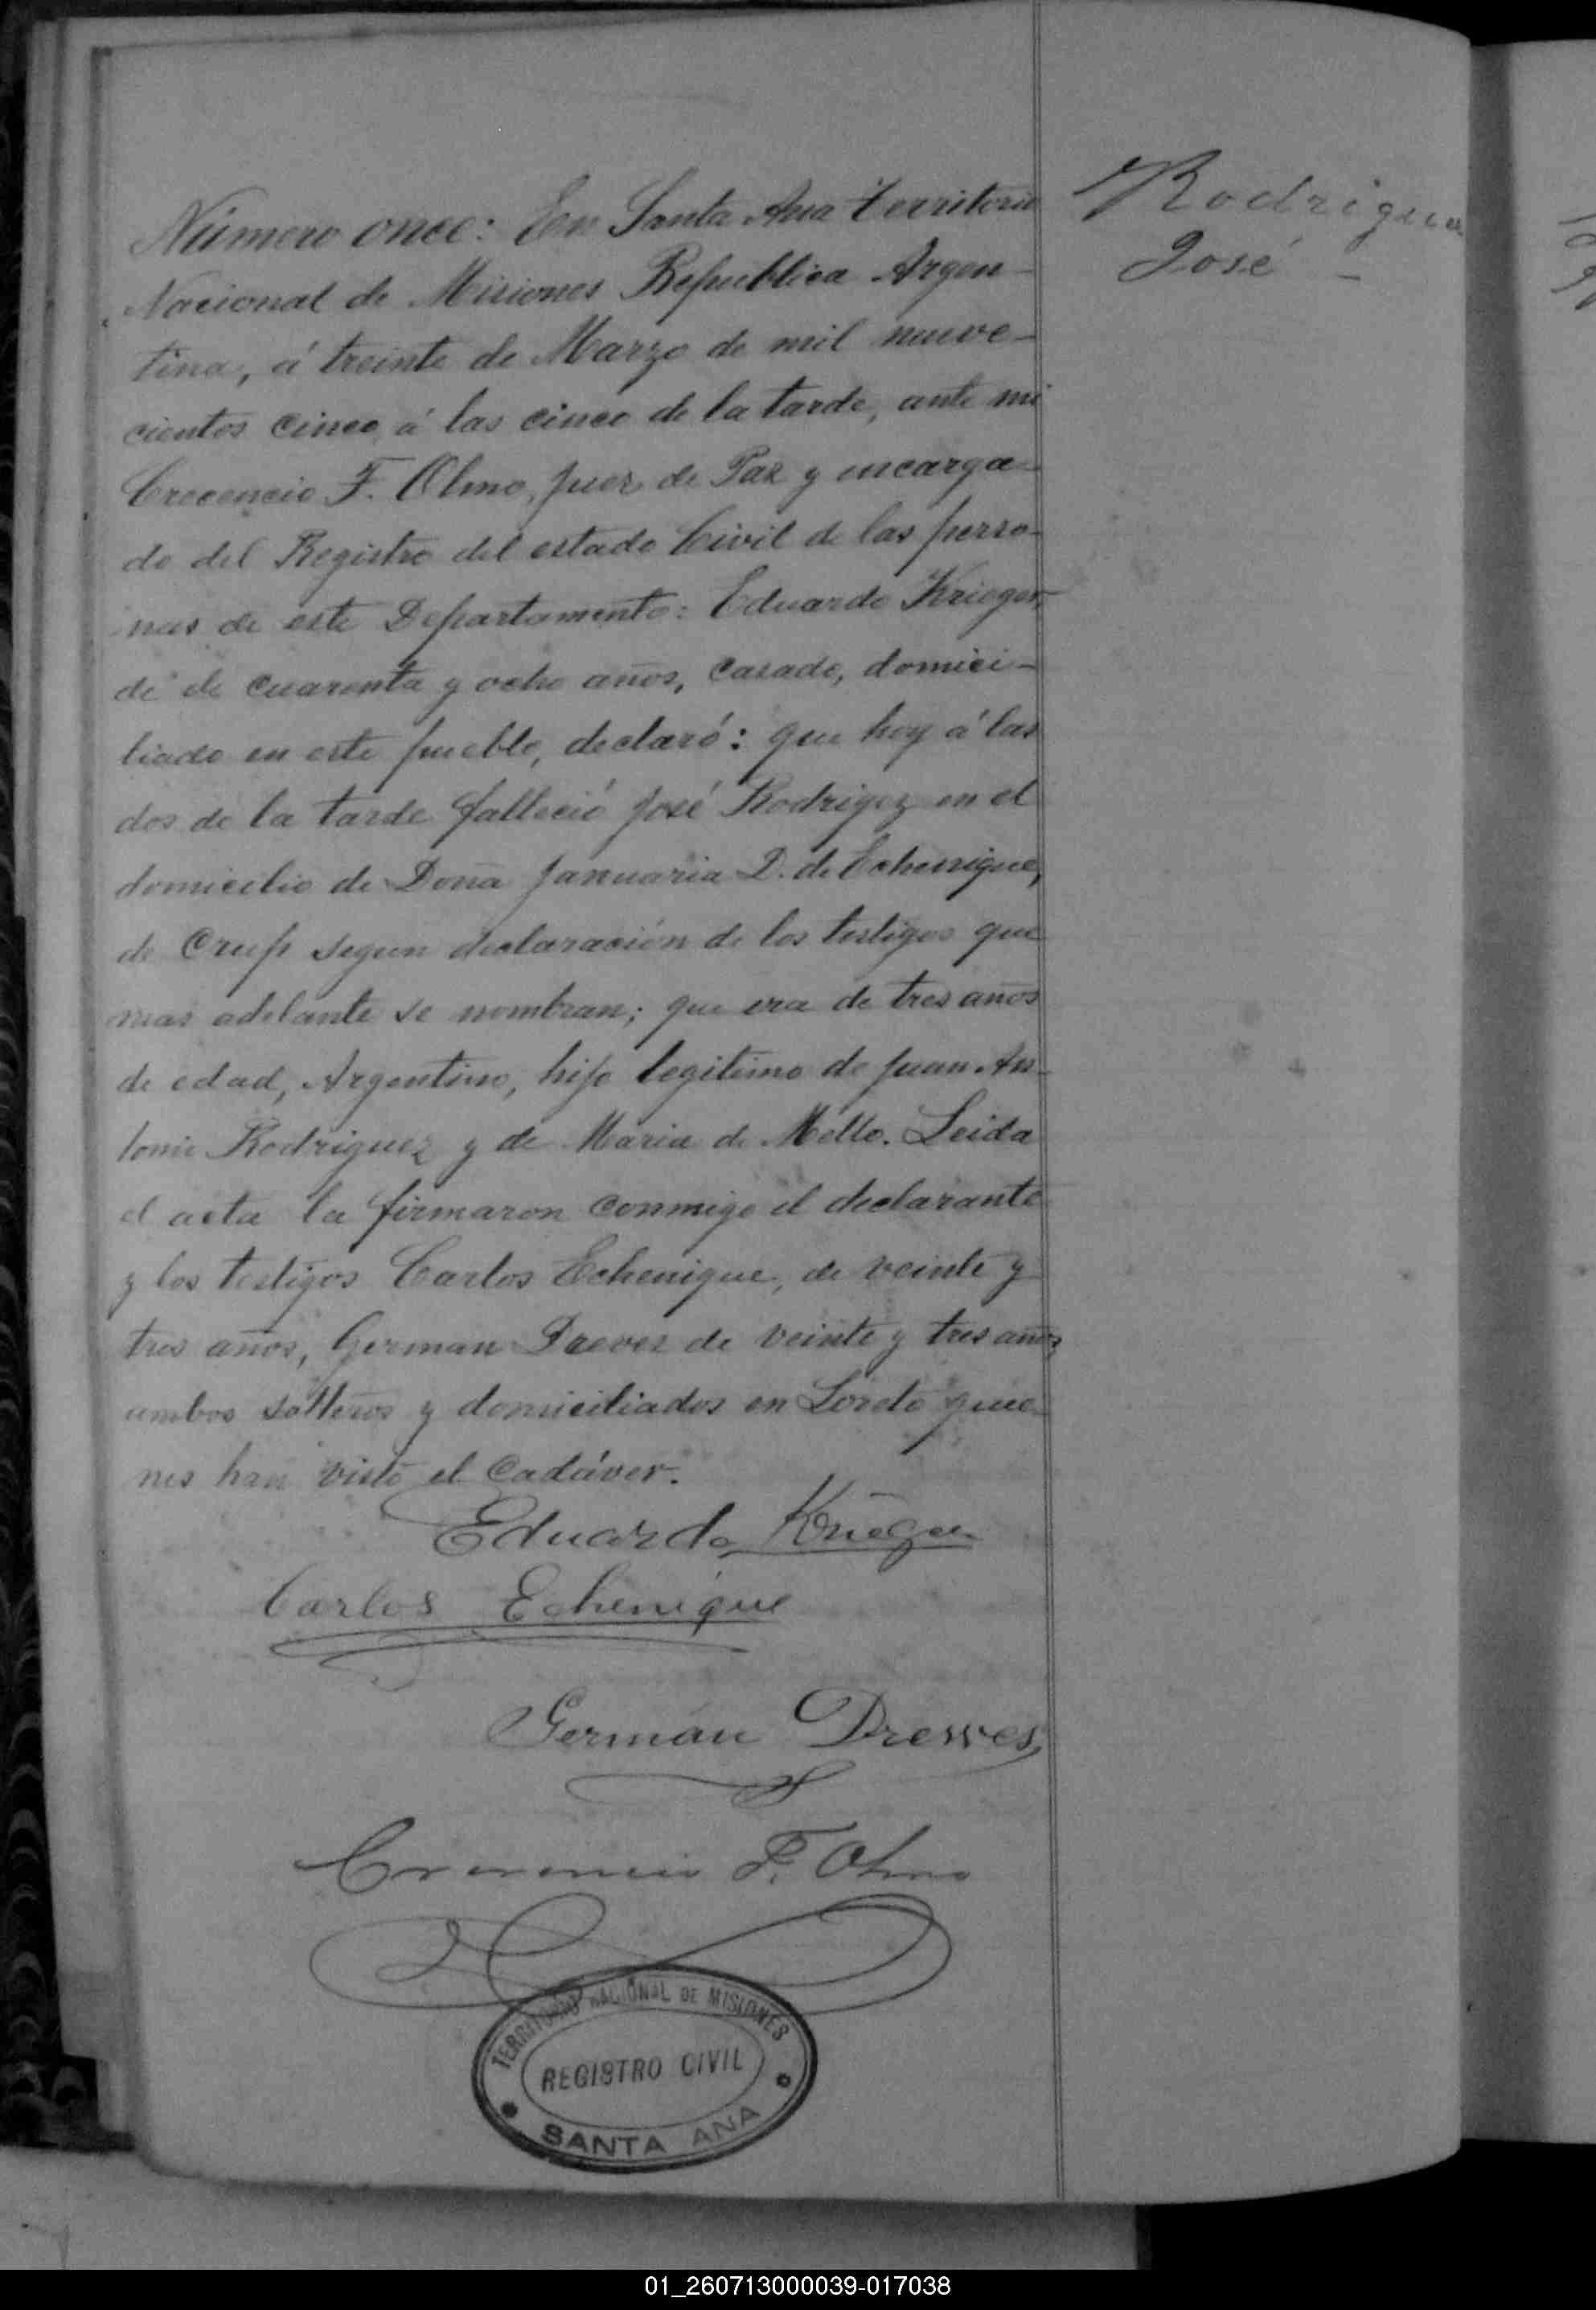 Rodriguez
José -
Número once: En Santa Ana Territorio
Nacional de Misiones Republica Argen-
tina, á treinta de Marzo de mil nueve-
cientos cinco á las cinco de la tarde, ante mi
Crecencio F. Olmo, Juez de Paz y encarga-
do del Registro del estado Civil de las perso-
nas de este Departamento: Eduardo Krieger,
de de cuarenta y ocho años, casado, domici-
liado en este pueblo, declaró: que hoy á las
dos de la tarde falleció José Rodrigez en el
domicilio de Doña Januaria D. de Echenique,
de Crup segun declaración de los testigos que
mas adelante se nombran; que era de tres años
de edad, Argentino, hijo legitimo de Juan An-
tonio Rodriguez y de Maria de Mello. Leida
el acta la firmaron conmigo el declarante
y los testigos Carlos Echenique, de veinte y
tres años, German Dreves de veinte y tres años,
ambos solteros y domiciliados en Loreto quie-
nes han visto el cadáver.
Eduardo Krieger
Carlos Echenique
Germán Drewes
Crecencio F. Olmo
TERRITORIO NACIONAL DE MISIONES
REGISTRO CIVIL
SANTA ANA
01_260713000039-017038